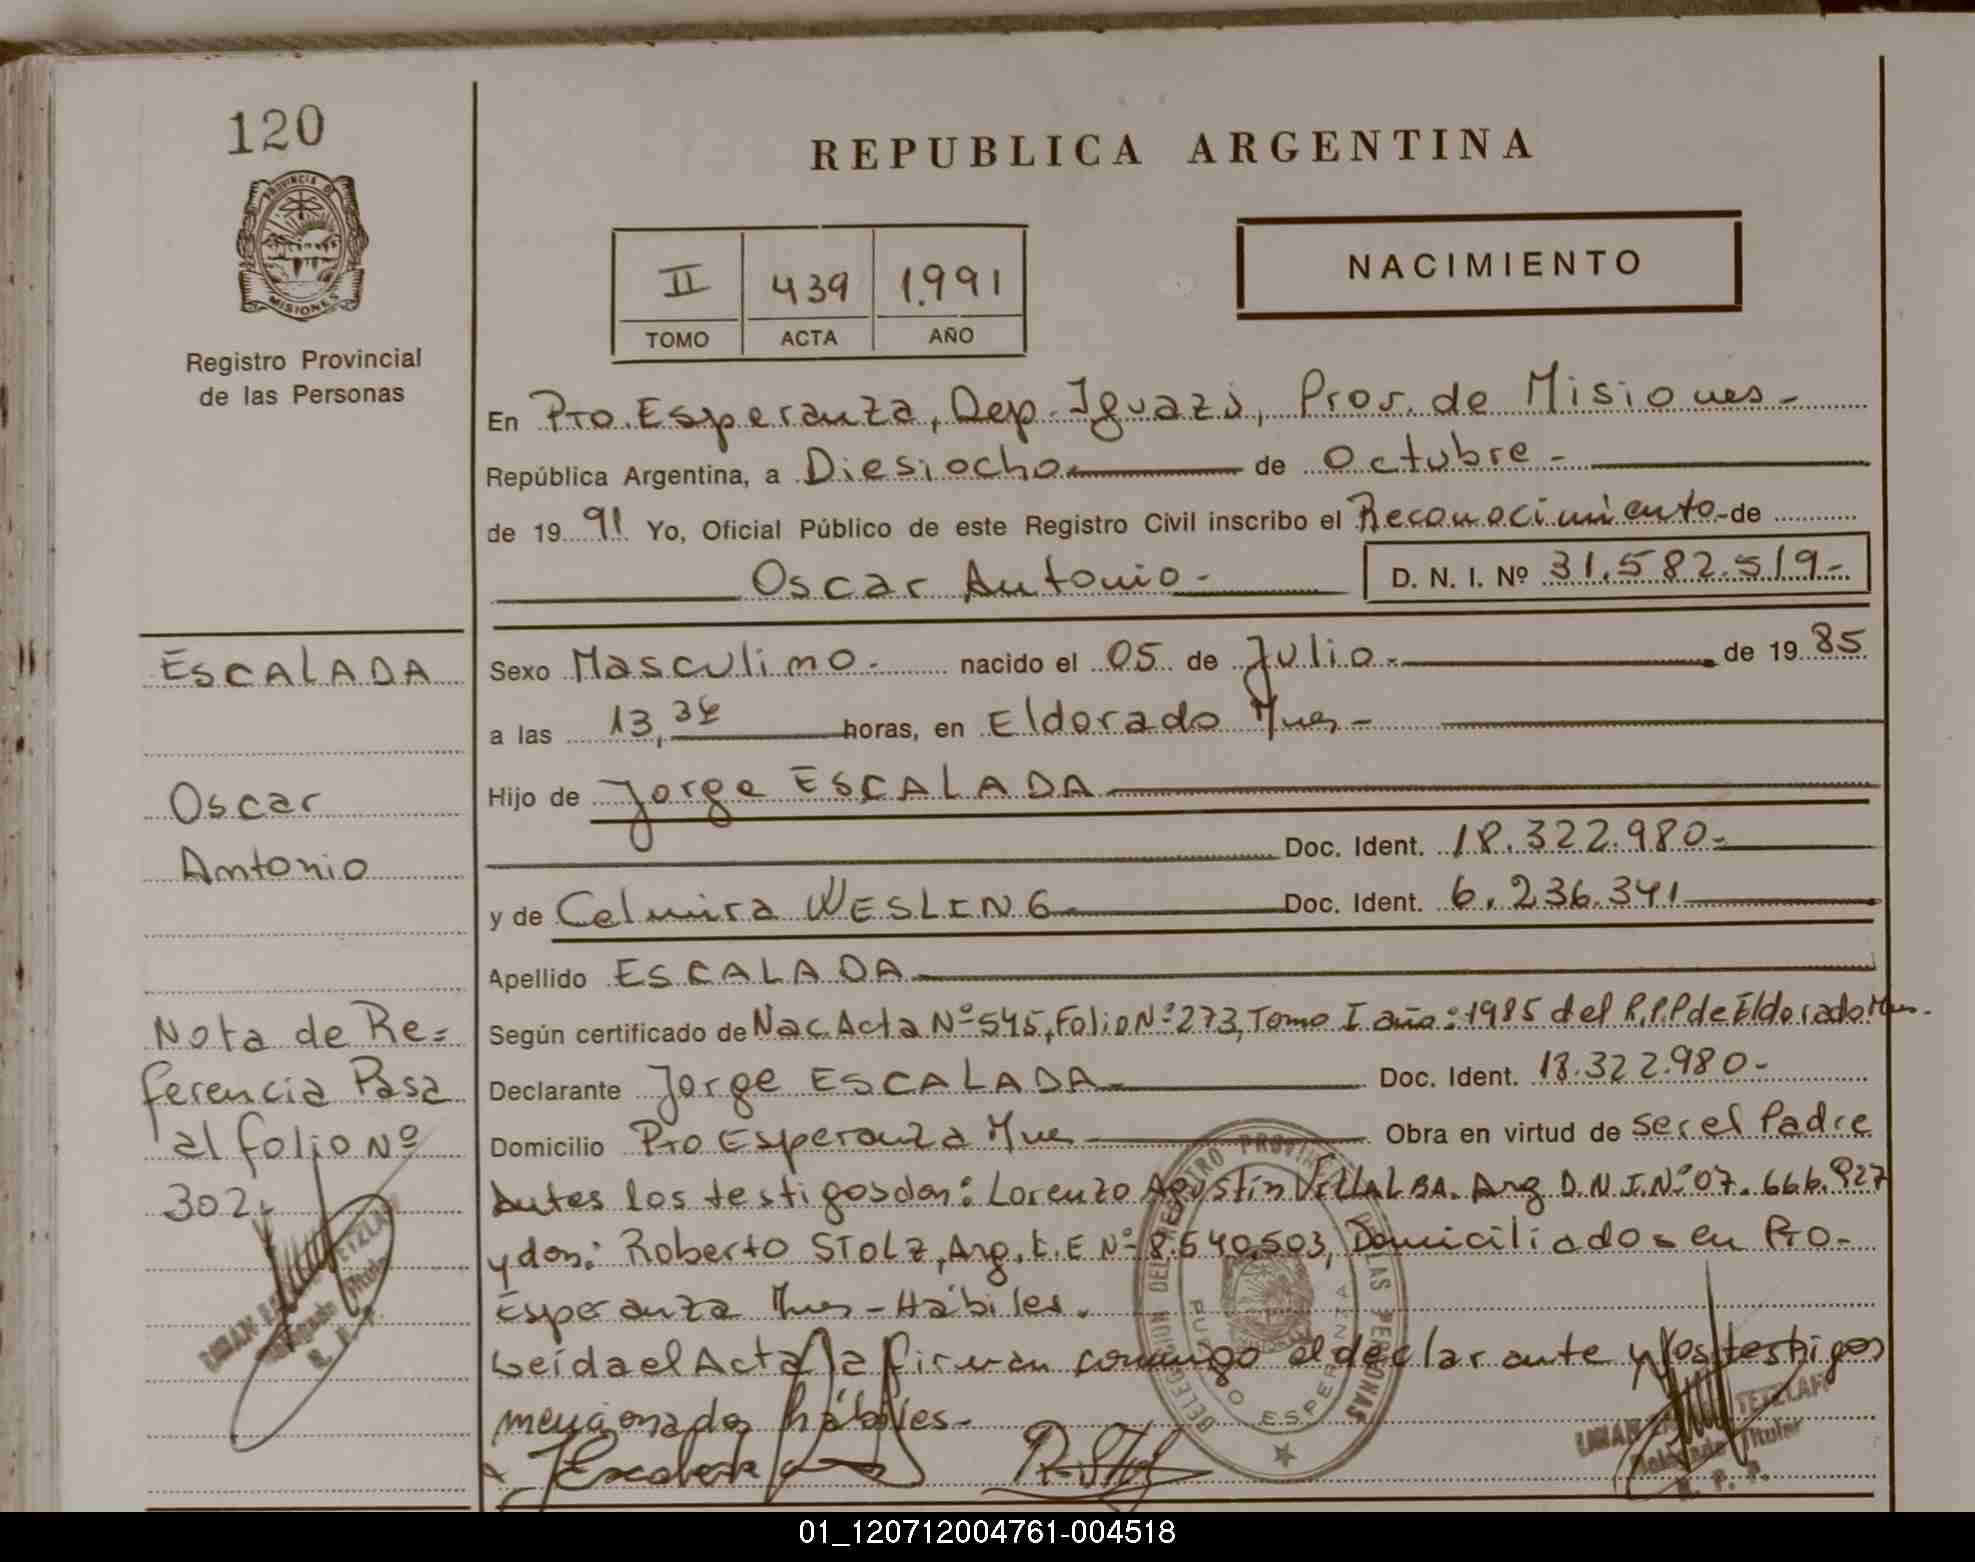 120
REPUBLICA ARGENTINA
PROVINCIA DE
MISIONES
Registro Provincial
de las Personas
II 439 1.991
TOMO ACTA AÑO
NACIMIENTO
En Pto. Esperanza, Dep. Iguazú, Prov. de Misiones -
República Argentina, a Diesiocho de Octubre -
de 19 91 Yo, Oficial Público de este Registro Civil inscribo el Reconocimiento - de
Oscar Antonio - D. N. I. Nº 31.582.519-
ESCALADA
Oscar
Antonio
Nota de Re=
ferencia Pasa
al folio Nº
302.
Sexo Masculino - nacido el 05 de Julio - de 19 85
a las 13,34 horas, en Eldorado Mnes -
Hijo de Jorge ESCALADA
Doc. Ident. 18.322.980-
y de Celmira WESLING Doc. Ident. 6.236.341
Apellido ESCALADA
Según certificado de Nac. Acta Nº 545, Folio Nº 273, Tomo I año: 1985 del R.P.P de Eldorado Mnes.
Declarante Jorge ESCALADA Doc. Ident. 18.322.980-
Domicilio Pto Esperanza Mnes Obra en virtud de ser el Padre
Antes los testigos don: Lorenzo Agustín VILLALBA. Arg D.N.I. Nº 07.666.927
y don: Roberto STOLZ, Arg. L.E Nº 8.540.503, Domiciliados en Pto-
Esperanza Mnes - Hábiles.
Leída el Acta la firman conmigo el declarante y los testigos
mencionados hábiles -
DELEGACION DEL REGISTRO PROVINCIAL DE LAS PERSONAS
PUERTO ESPERANZA
TETZLAFF
Delegado Titular
R. P. P.
01_120712004761-004518